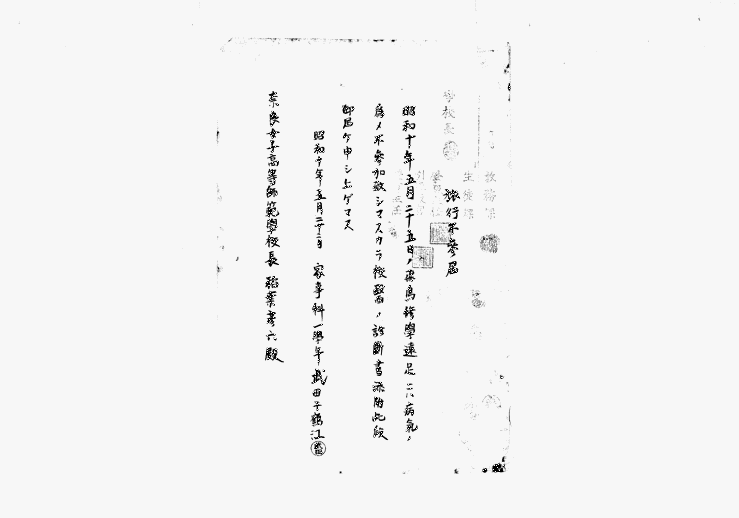 學校長
教務課
生徒課
旅行不參届
昭和十年五月二十五日ノ飛鳥修學遠足ニハ病氣ノ
爲メ不參加致シマスカラ校醫ノ診斷書添附此段
御届ケ申シ上ゲマス
昭和十年五月二十三日 家事科一學年 武田千鶴江
奈良女子高等師範學校長 稲葉彦六殿